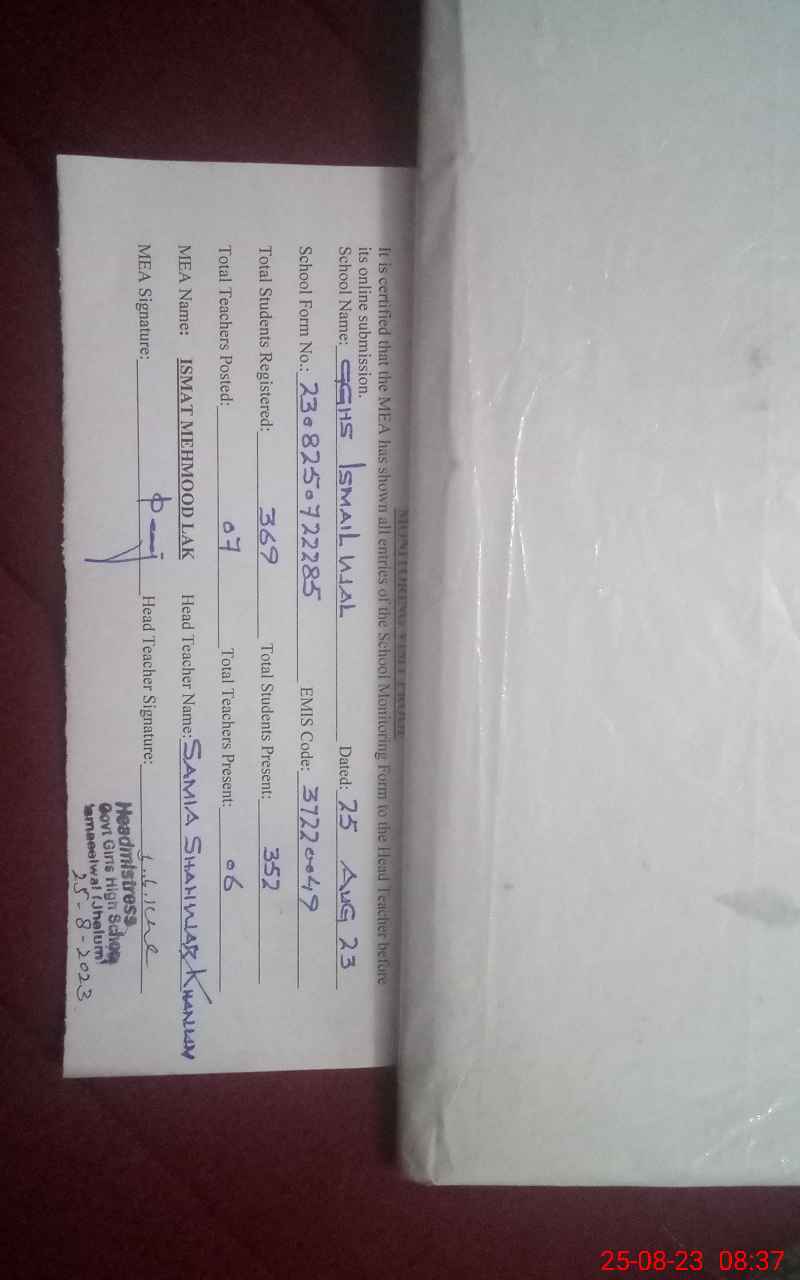 MONITORING VISIT PROOF
It is certified that the MEA has shown all entries of the School Monitoring Form to the Head Teacher before
its online submission.
School Name: GGHS ISMAIL WAL Dated: 25 AUG 23
School Form No.: 2308250722285 EMIS Code: 37220049
Total Students Registered: 369 Total Students Present: 352
Total Teachers Posted: 07 Total Teachers Present: 06
MEA Name: ISMAT MEHMOOD LAK Head Teacher Name: SAMIA SHAHWAR
MEA Signature: Head Teacher Signature:
Headmistress
Govt Girls High School
Ismaeelwal (Jhelum)
25-8-2023
25-08-23 08:37